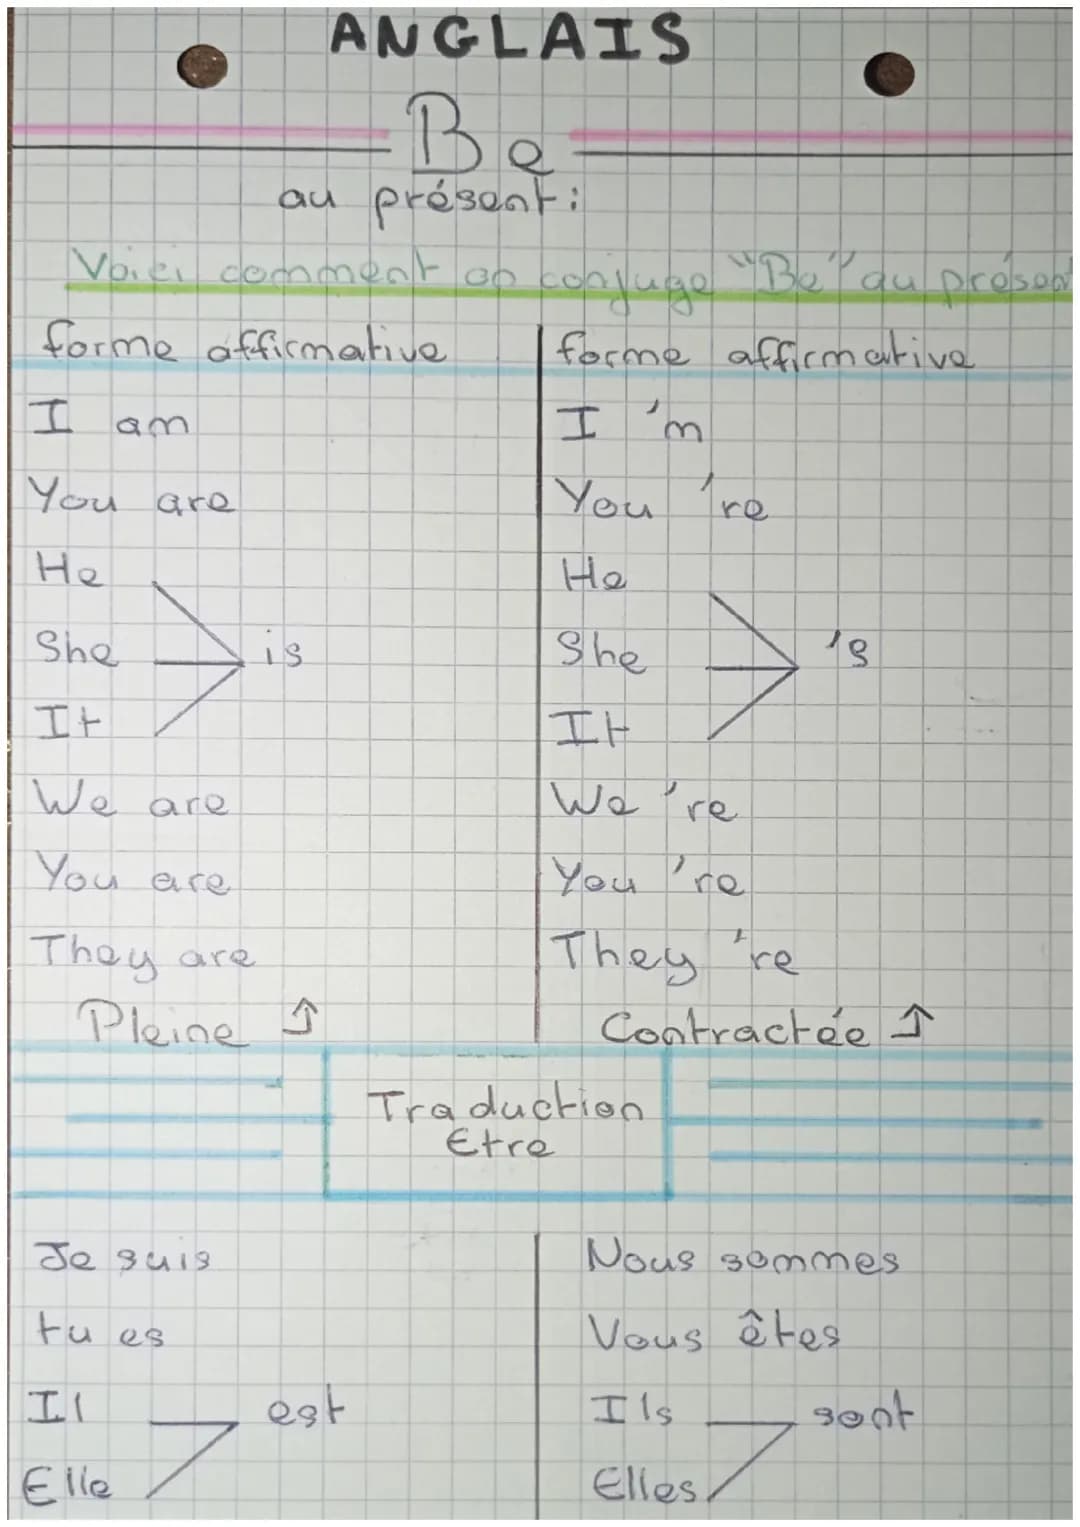 ANGLAIS
Be
au présent:
Voici comment on conjuge "Be" au présent
forme affirmative
I am
You are
He
She is
It
We are
You are
They are
Pleine ↑
forme affirmative
I 'm
You 're
He
She 's
It
We 're
You 're
They 're
Contractée ↑
Traduction
Etre
Je suis
tu es
Il est
Elle
Nous sommes
Vous êtes
Ils sont
Elles